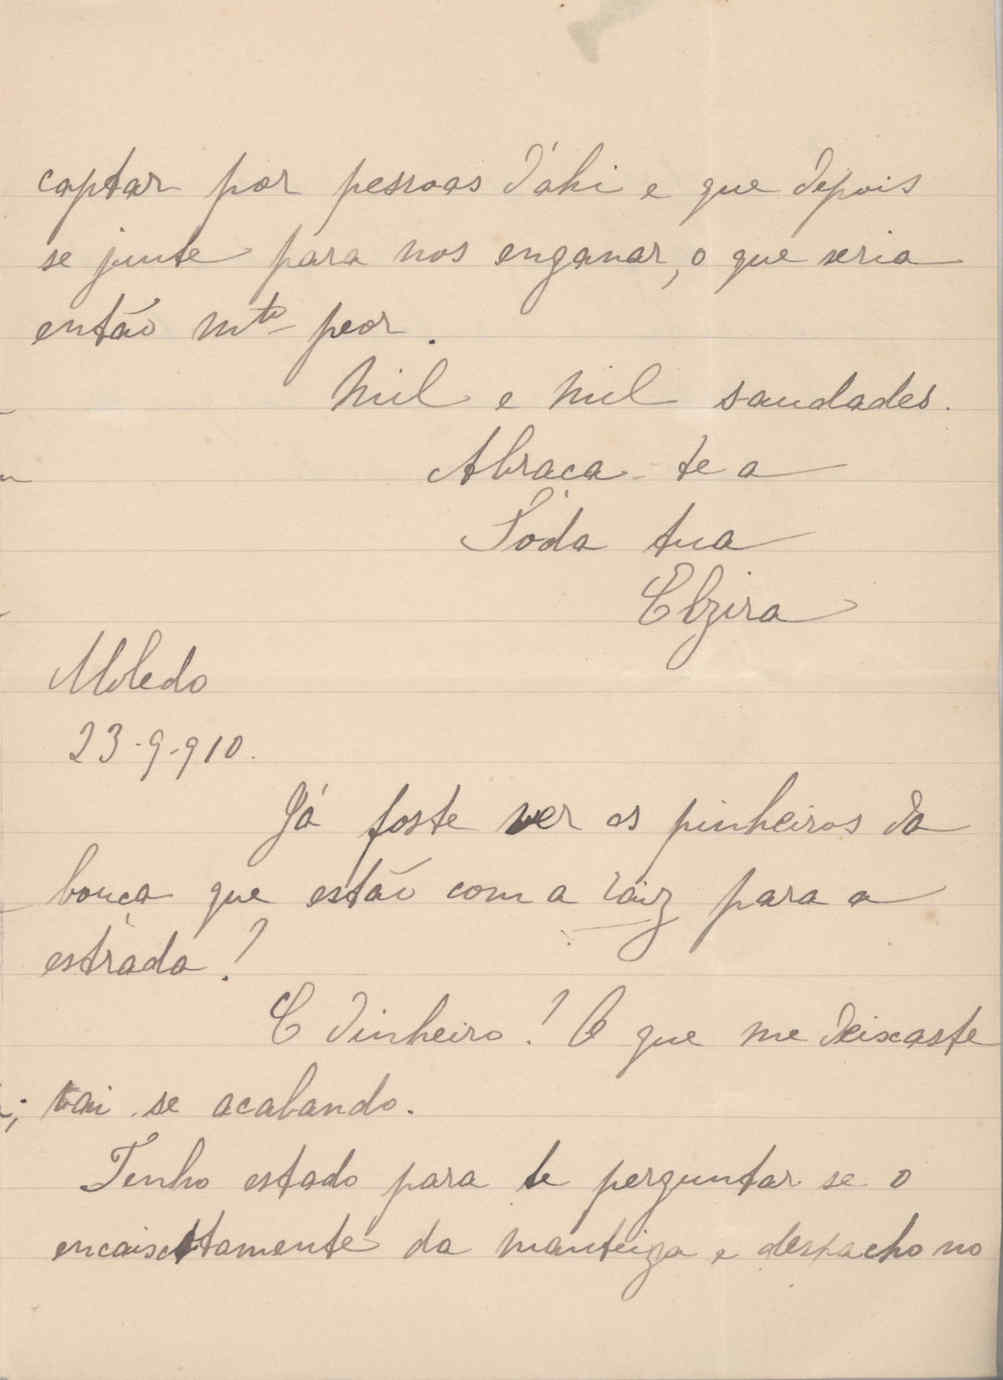 captar por pessoas d'ahi e que depois
se junte para nos enganar, o que seria
então mto peor.
Mil e mil saudades.
Abraça-te a
Tóda tua
Elzira
Moledo
23-9-910.
Já foste ver os pinheiros da
bouça que estão com a raiz para a
estrada?
E dinheiro? O que me deixaste
vai se acabando.
Tenho estado para te perguntar se o
da manteiga e despacho no